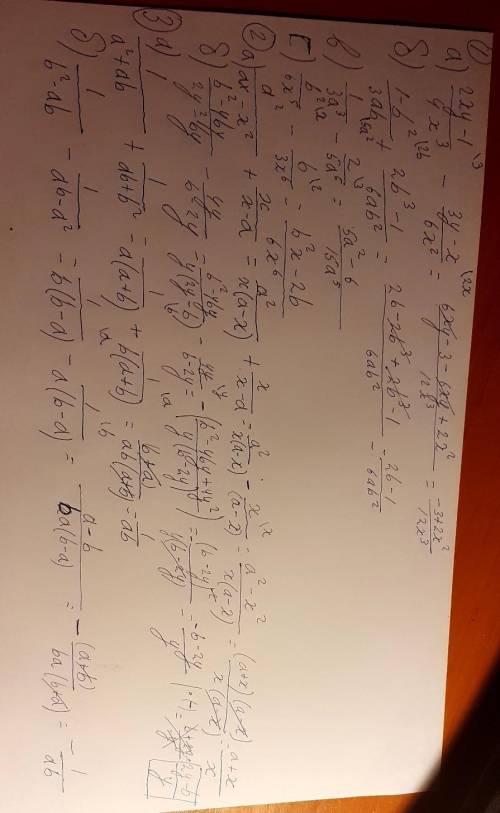 ①
а) (2xy-1)/(4x³) \3 - (3y-x)/(6x²) \2x = (6xy-3-6xy+2x²)/(12x³) = (-3+2x²)/(12x³)
б) (1-b²)/(3ab) \2b + (2b³-1)/(6ab²) = (2b-2b³+2b³-1)/(6ab²) = (2b-1)/(6ab²)
в) 1/(3a³) \5a² - 2/(5a⁵) \3 = (5a²-6)/(15a⁵)
г) b²/(6x⁵) - b/(3x⁶) \2 = (b²x-2b)/(6x⁶)
② а) a²/(ax-x²) + x/(x-a) = a²/(x(a-x)) + x/(x-a) = a²/(x(a-x)) - x/(a-x) \x = (a²-x²)/(x(a-x)) = ((a+x)(a-x))/(x(a-x)) = (a+x)/x
б) (b²-4by)/(2y²-by) - 4y/(b-2y) = (b²-4by)/(y(2y-b)) - 4y/(b-2y) \y = -(b²-4by+4y²)/(y(b-2y)) = (b-2y)²/(y(b-2y)) = -(b-2y)/y = (2y-b)/y
③ а) 1/(a²+ab) + 1/(ab+b²) = 1/(a(a+b)) \b + 1/(b(a+b)) \a = (b+a)/(ab(a+b)) = 1/(ab)
б) 1/(b²-ab) - 1/(ab-a²) = 1/(b(b-a)) - 1/(a(b-a)) = (a-b)/(ba(b-a)) = -(a+b)/(ba(b+a)) = -1/(ab)